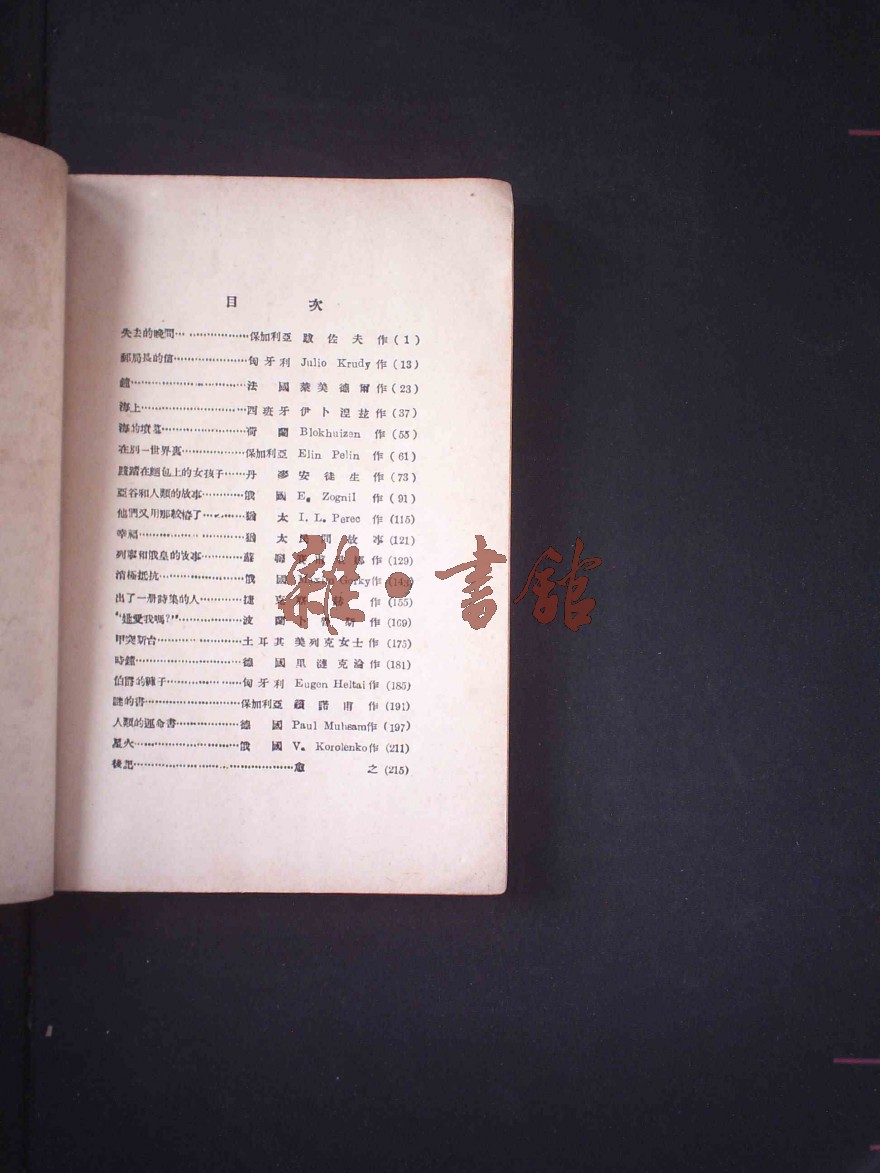 目 次
失去的晚間………………保加利亞 跋佐夫 作(1)
郵局長的信…………………匈牙利 Julio Krudy 作(13)
鐘……………………………法國 萊美德爾 作(23)
海上…………………………西班牙 伊卜涅茲 作(37)
海的墳墓……………………荷蘭 Blokhuizen 作(55)
在別一世界裏………………保加利亞 Elin Pelin 作(61)
踐踏在麵包上的女孩子……丹麥 安徒生 作(73)
亞谷和人類的故事…………俄國 E. Zognil 作(91)
他們又用那絞榜了……猶太 I. L. Perec 作(115)
幸福…………………………猶太 民間故事(121)
列寧和俄皇的故事…………蘇聯 作(129)
消極抵抗……………………俄國 Maxim Gorky作(14
出了一册詩集的人…………捷克 作(155)
“她愛我嗎?”………………波蘭 卜魯斯 作(169)
甲突斯台……………………土耳其 美列克女士作(175)
時鐘…………………………德國 凧漣克淪作(181)
伯爵的褲子…………………匈牙利 Eugen Heltai作(185)
謎的書………………………保加利亞 頗諾甫 作(191)
人類的運命書………………德國 Paul Muhsam作(197)
星火…………………………俄國 V. Korolenko作(211)
後記…………………………………愈之(215)
雜·書館